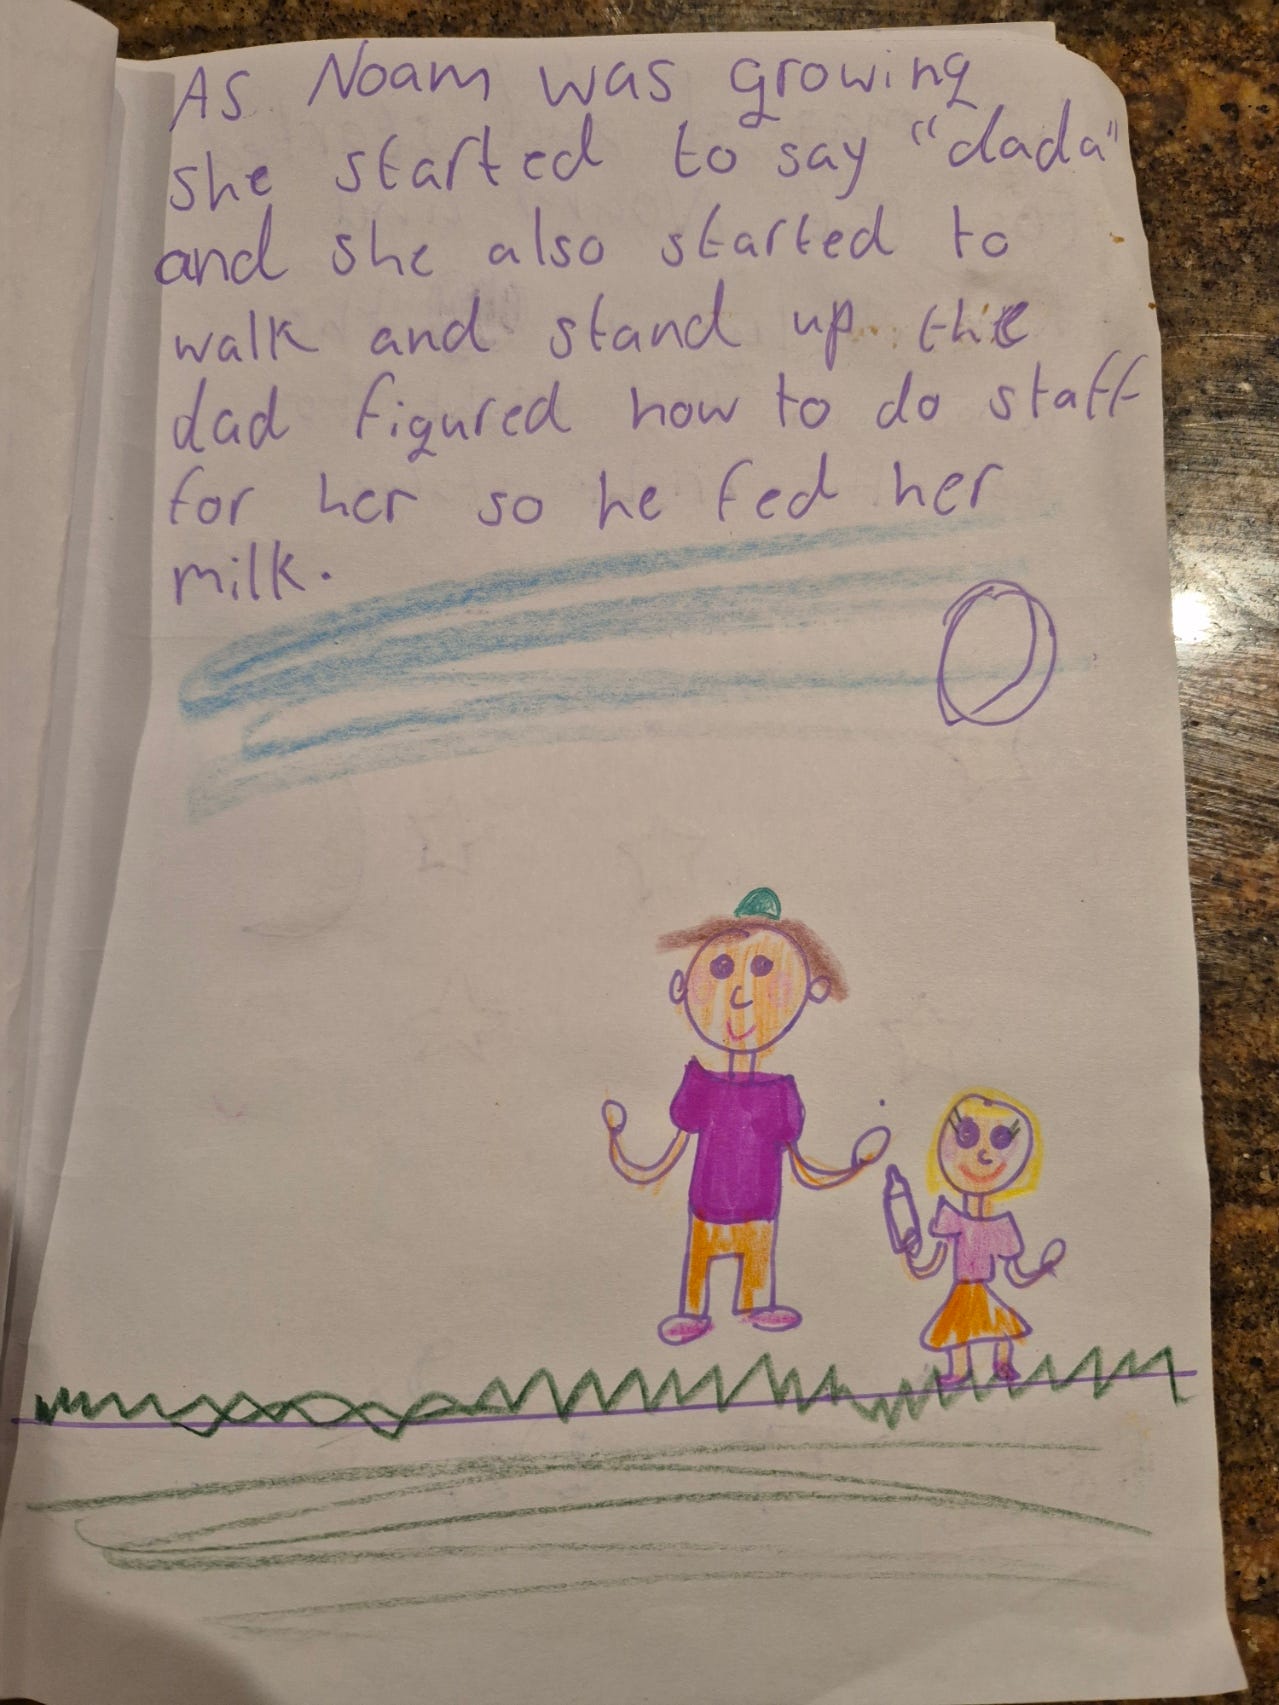 As Noam was growing
she started to say "dada"
and she also started to
walk and stand up the
dad figured how to do staff
for her so he fed her
milk.